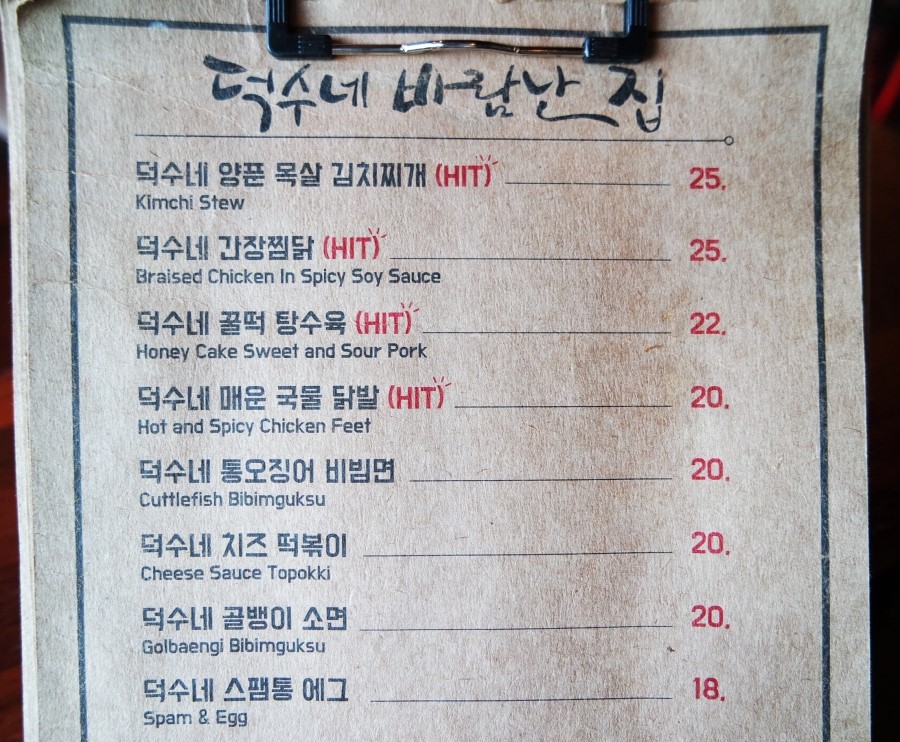 덕수네 바람난 집
덕수네 양푼 목살 김치찌개 (HIT) 25.
Kimchi Stew
덕수네 간장찜닭 (HIT) 25.
Braised Chicken In Spicy Soy Sauce
덕수네 꿀떡 탕수육 (HIT) 22.
Honey Cake Sweet and Sour Pork
덕수네 매운 국물 닭발 (HIT) 20.
Hot and Spicy Chicken Feet
덕수네 통오징어 비빔면 20.
Cuttlefish Bibimguksu
덕수네 치즈 떡볶이 20.
Cheese Sauce Topokki
덕수네 골뱅이 소면 20.
Golbaengi Bibimguksu
덕수네 스팸통 에그 18.
Spam & Egg